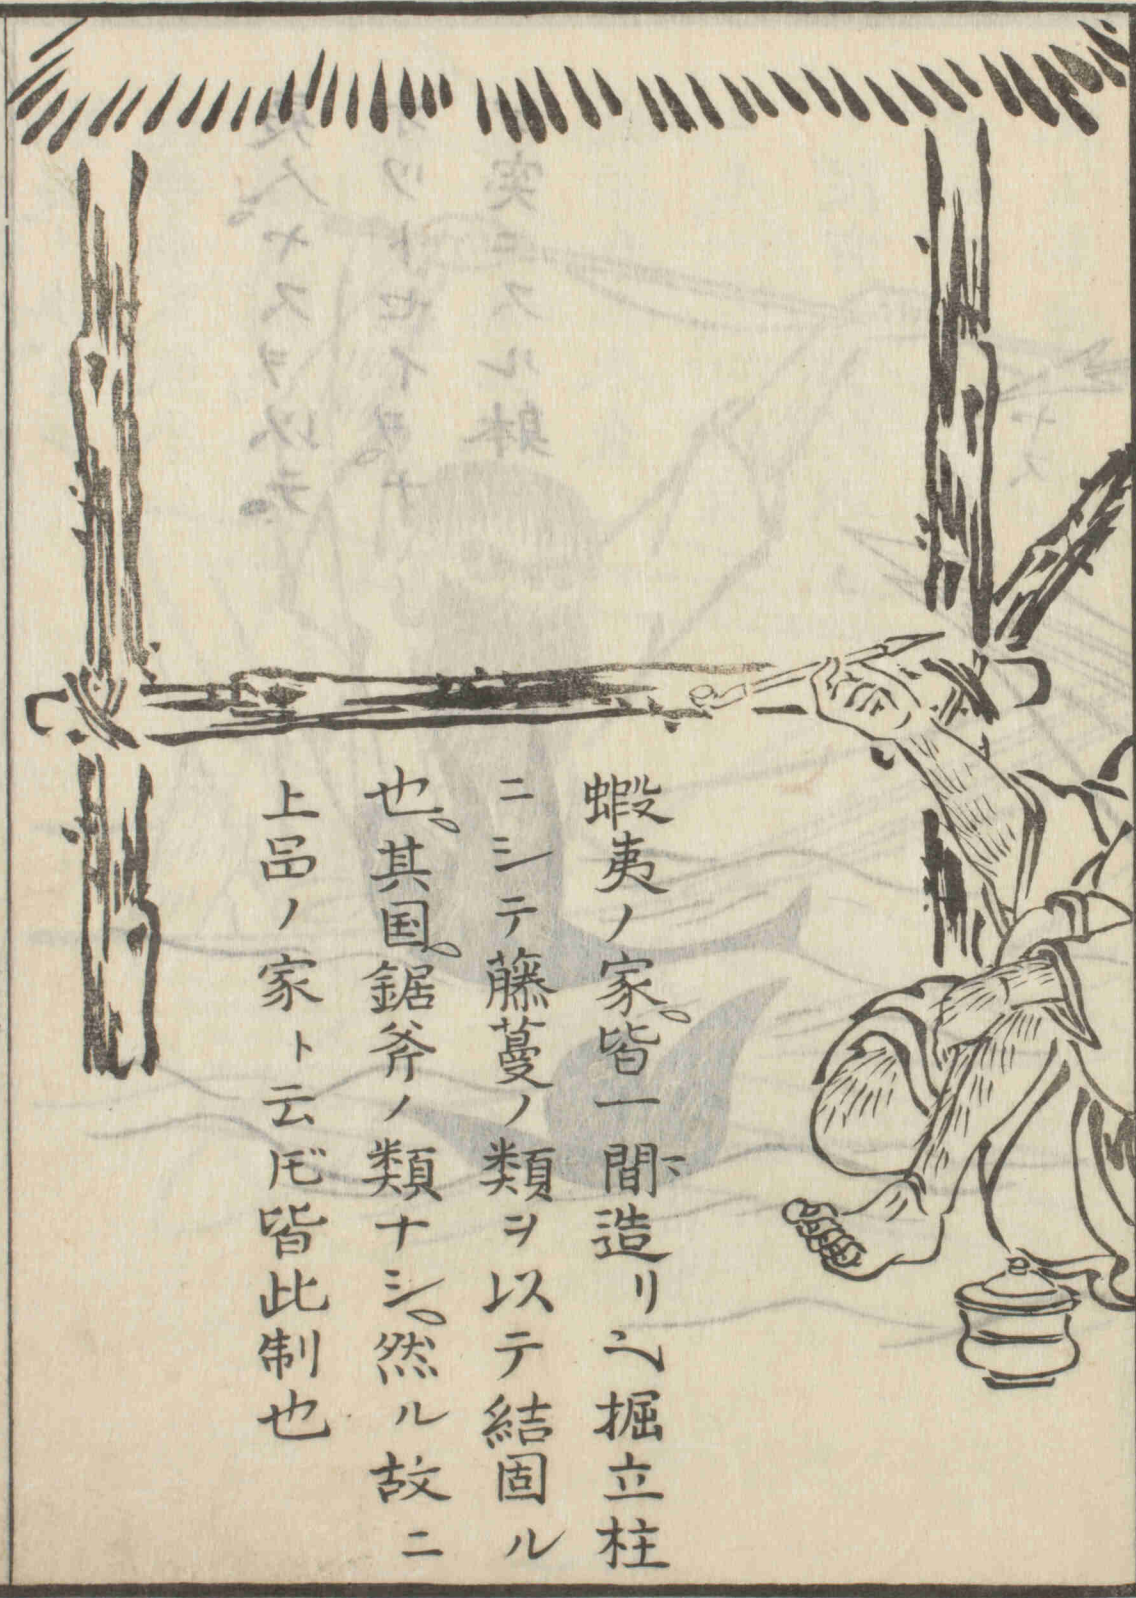 蝦夷ノ家。皆一間マ造リ掘立柱
ニシテ藤蔓ノ類ヲ以テ結固ル
也。其国。鋸斧ノ類ナシ。然ル故ニ
上品ノ家ト云𪜈皆此制也